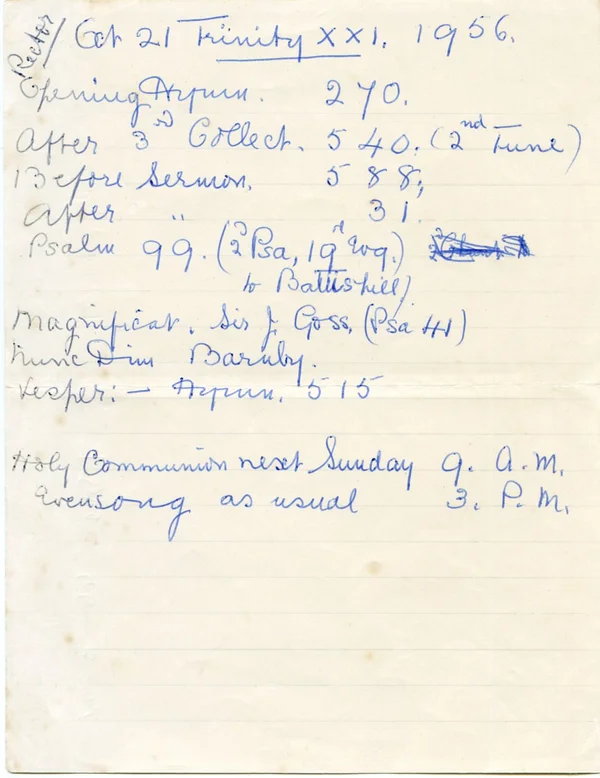 Rector/ Oct 21 Trinity XXI. 1956.
Opening Hymn. 270.
After 3rd Collect. 540. (2nd Tune)
Before Sermon. 588,
After " 31.
Psalm 99. (2 Psa, 19
to Battishill)
Magnificat. Sir J. Goss. (Psa 41)
Nunc Dim Barnby.
Vesper:- Hymn. 515
Holy Communion next Sunday 9. A.M.
Evensong as usual 3. P.M.